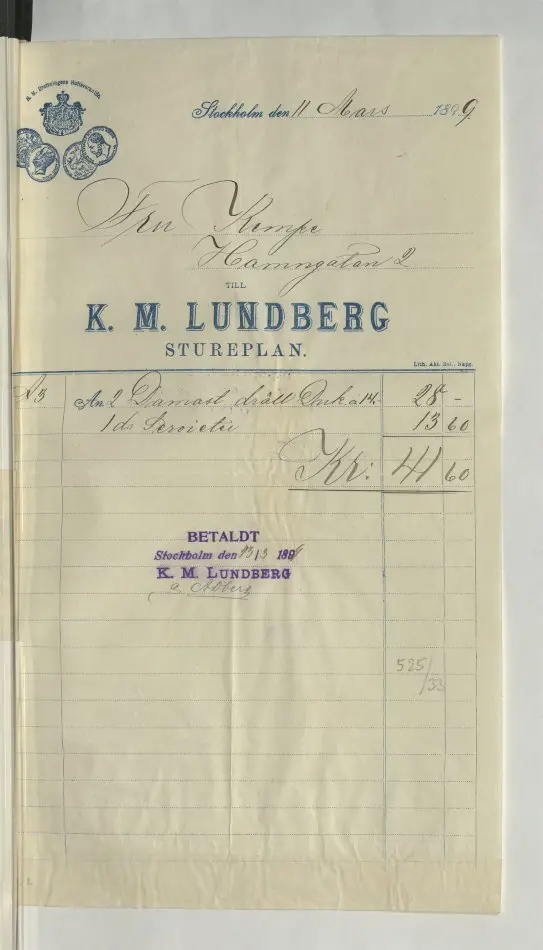 H. M. Drottningens Hofleverantör.
Stockholm den 11 Mars 1899
Fru Kempe
Hamngatan 2
TILL
K. M. LUNDBERG
STUREPLAN.
Lith. Akt. Bol., Norrp.
An 2 Damast dräll Duk a 14- 28 -
1 ds Servietter 13 60
Kr: 41 60
BETALDT
Stockholm den 13/3 1899
K. M. LUNDBERG
525/33